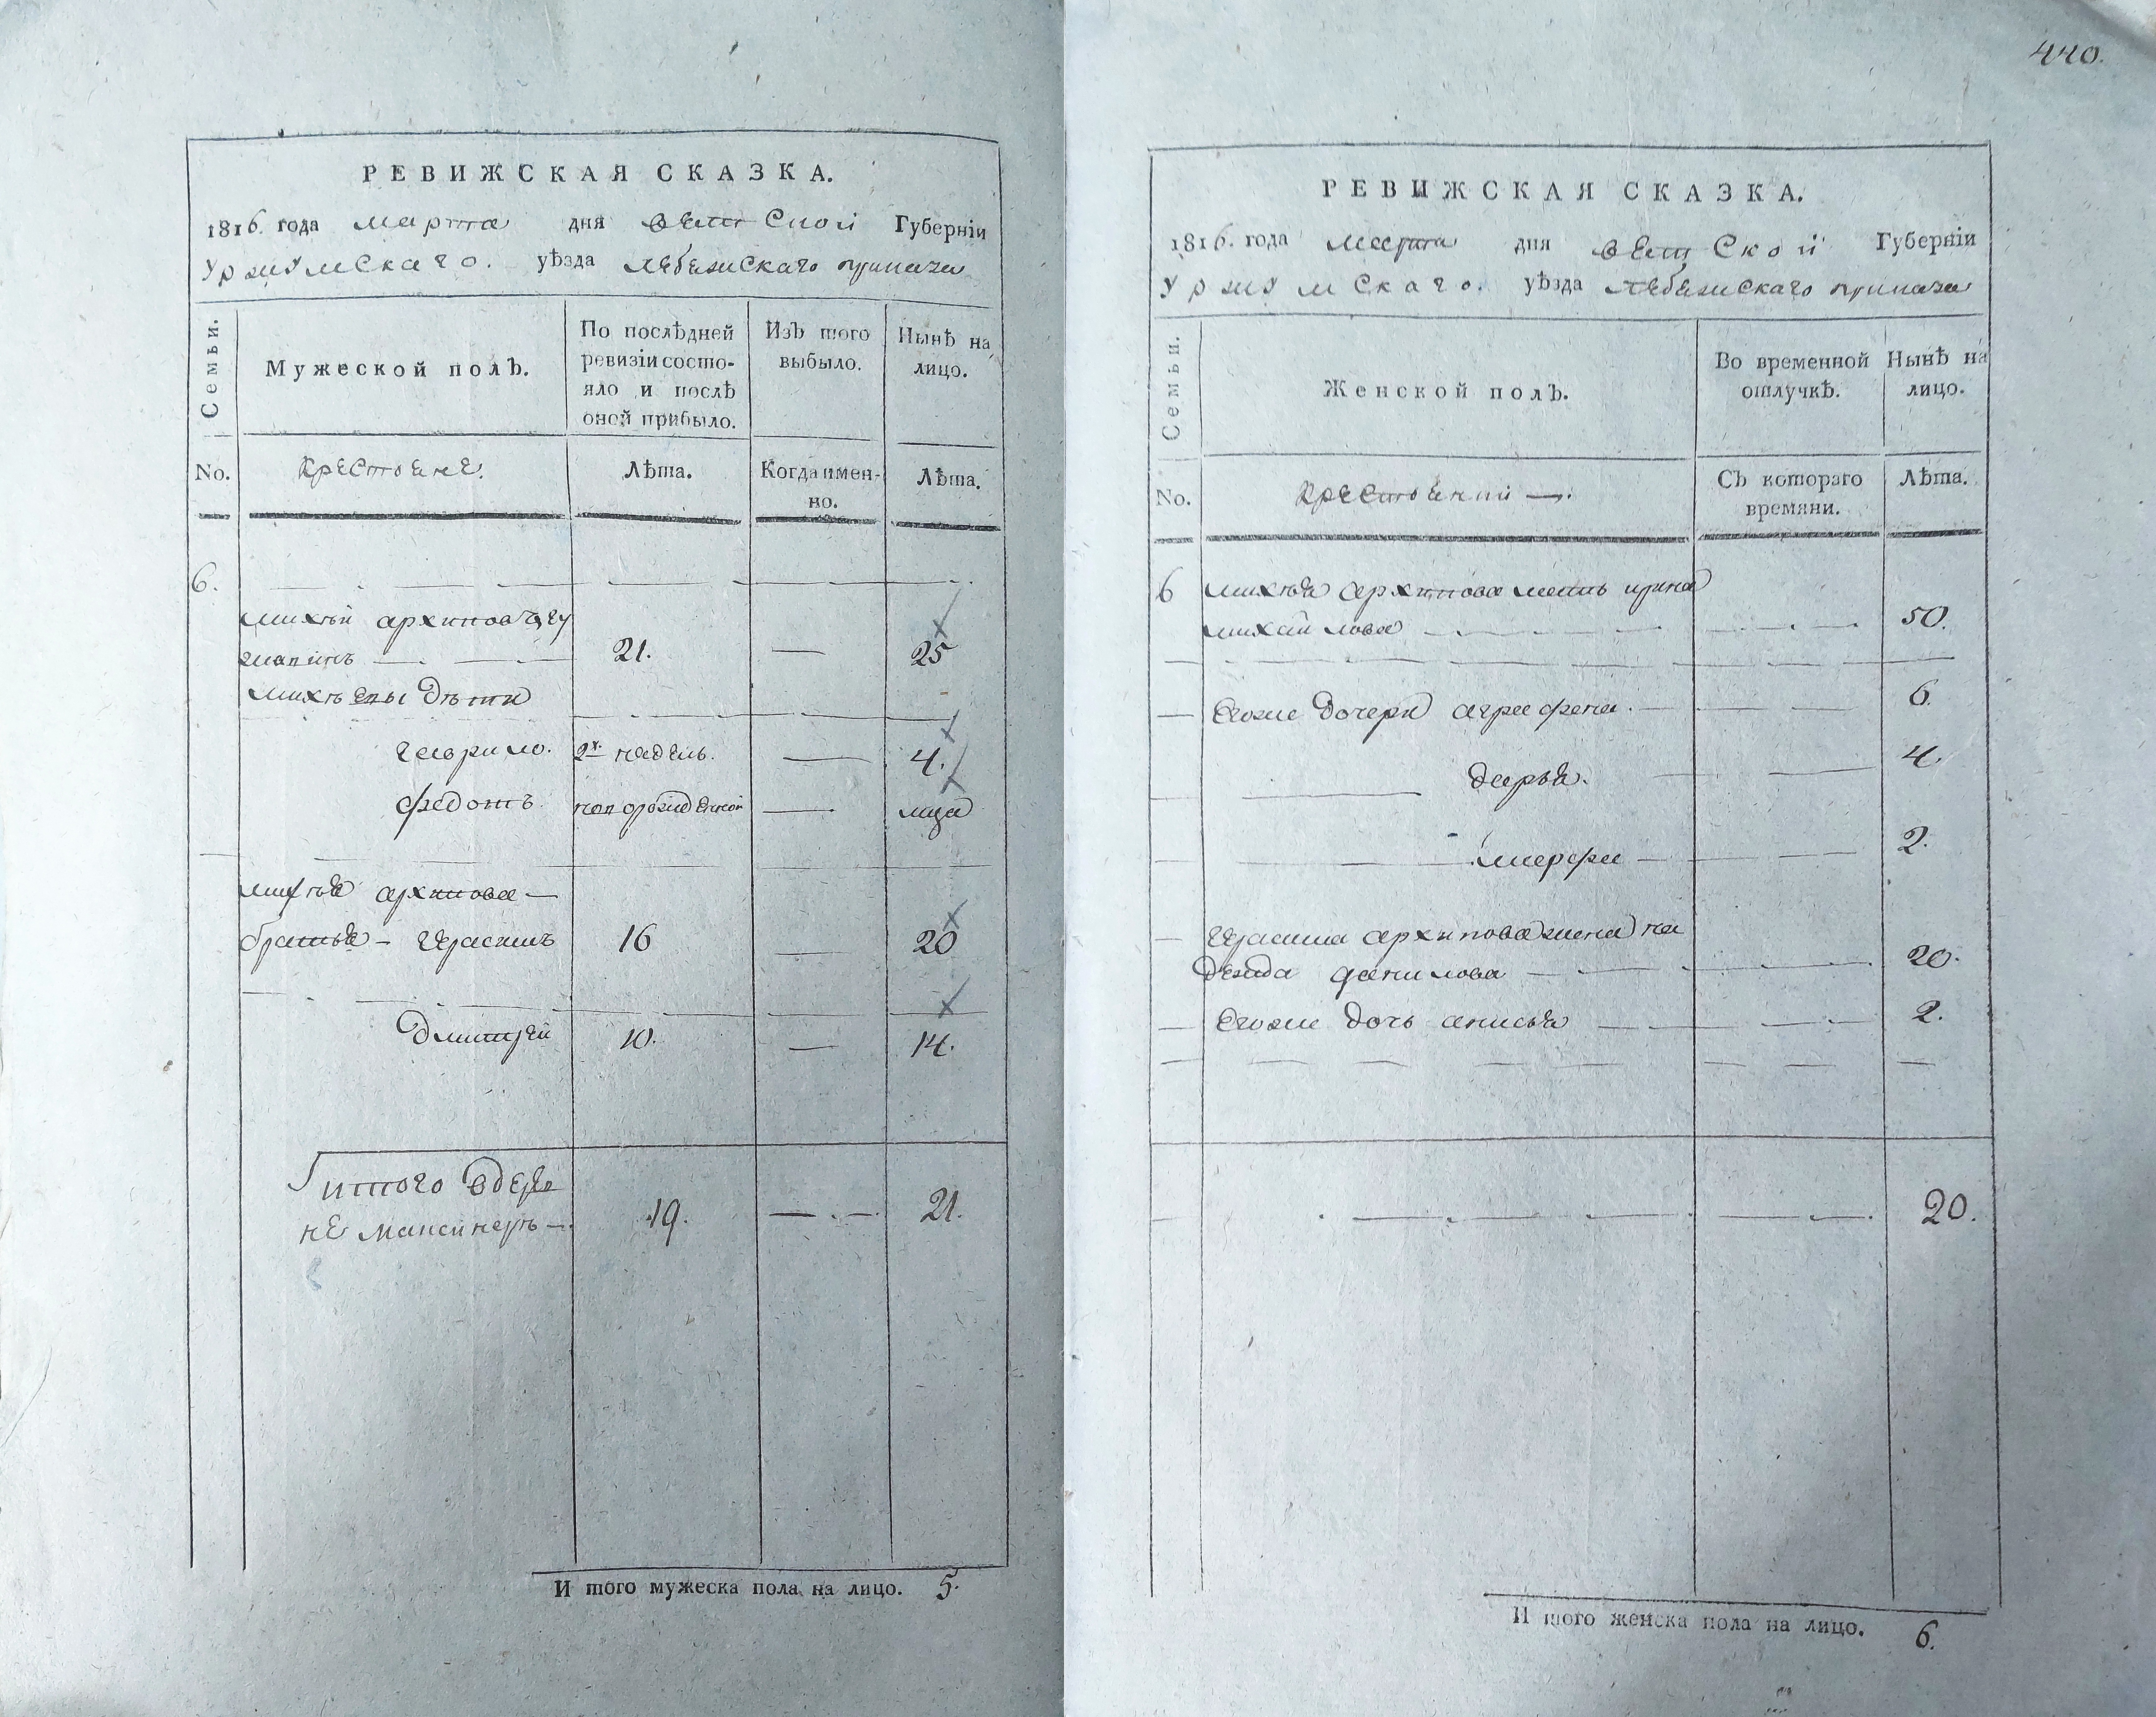 440.
РЕВИЖСКАЯ СКАЗКА.
1816. года марта дня вятской Губерніи
Уржумскаго. уѣзда лебежскаго приказа
Семьи.
Мужеской полъ.
По послѣдней ревизіи состояло и послѣ оной прибыло.
Изъ того выбыло.
Нынѣ на лицо.
No. крестьяне. Лѣта. Когда именно. Лѣта.
6.
михѣй архипов
21. — 25
михѣевы дѣти
гаврило. 2х недель. — 4.
федотъ. — лица
михѣя архипова —
братья — герасимъ 16 — 20
дмитрей 10. — 14.
итого в дерев
не 19. — 21.
И того мужеска пола на лицо. 5.
РЕВИЖСКАЯ СКАЗКА.
1816. года марта дня вятской Губерніи
Уржумскаго. уѣзда лебежскаго приказа
Семьи.
Женской полъ.
Во временной отлучкѣ.
Нынѣ на лицо.
No. — Съ котораго времяни. Лѣта.
6 михѣя архипова мать ирина
михайлова — 50.
Егоже дочери аграфена. — 6.
дарья. — 4.
марфа — 2.
герасима архипова жена на
дежда данилова — 20.
Егоже дочь анисья — 2.
20.
И того женска пола на лицо. 6.